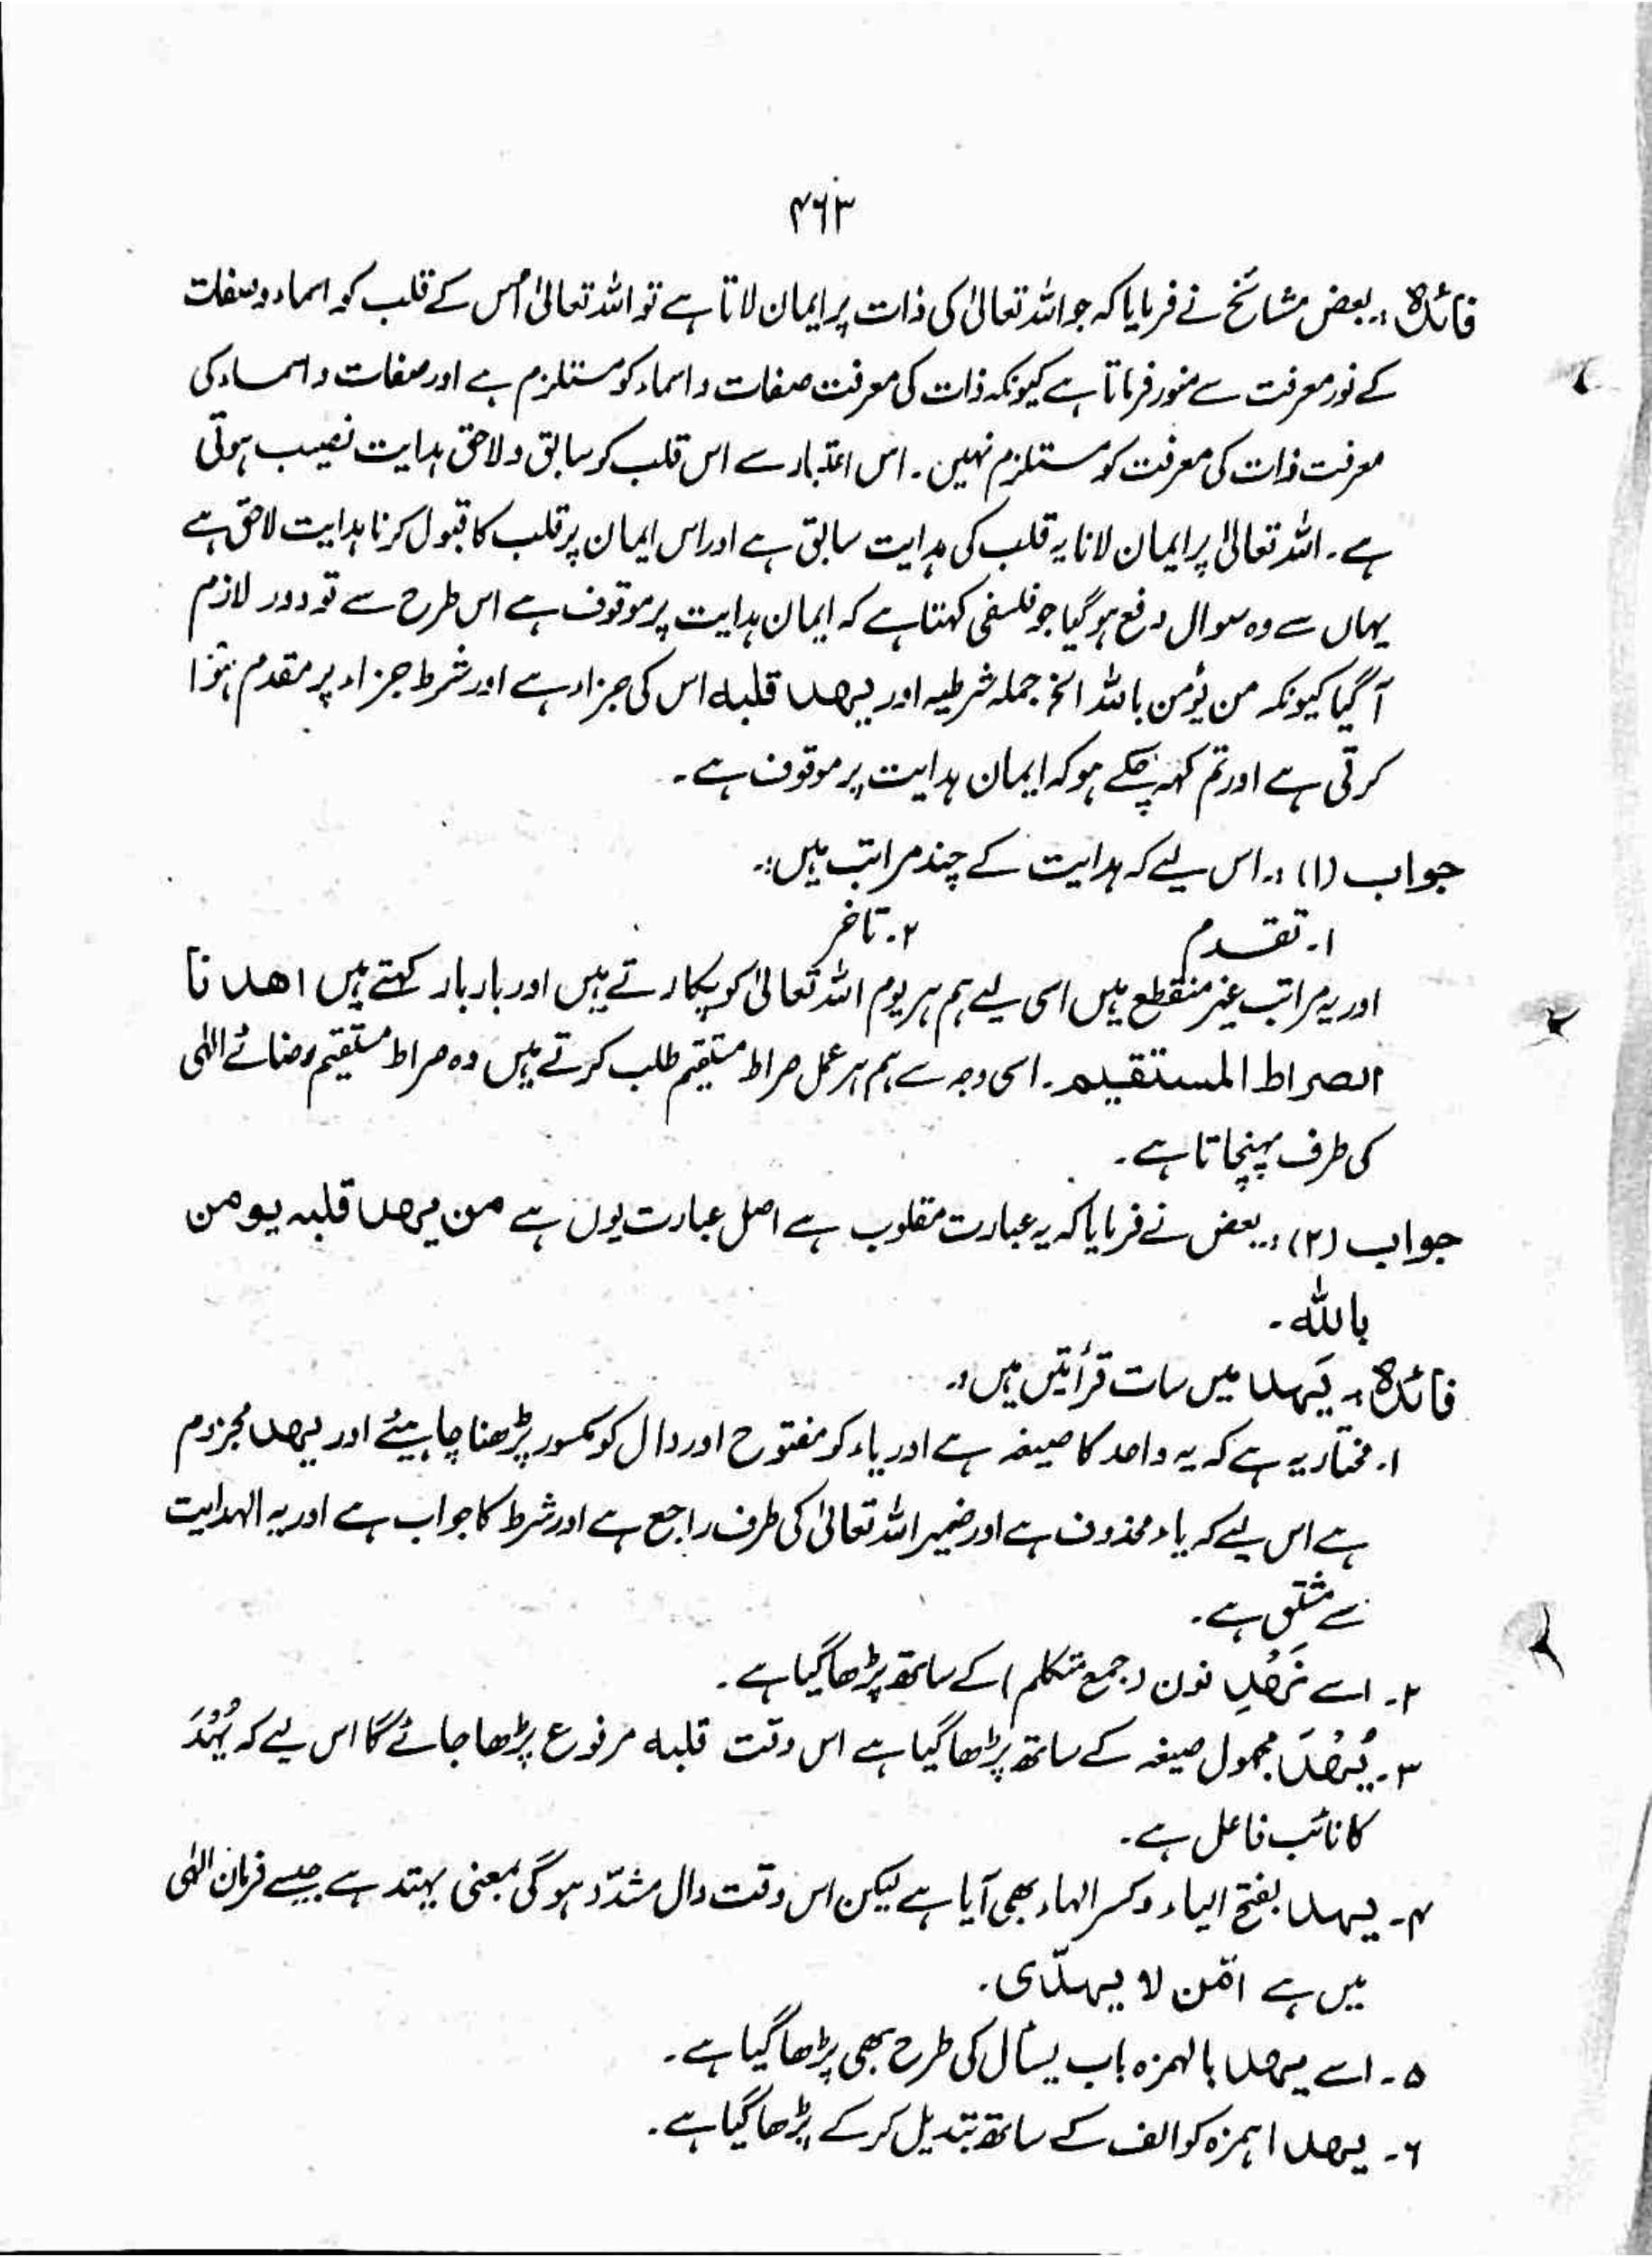 ۴۶۳
فائدہ:۔ بعض مشائخ نے فرمایا کہ جو اللہ تعالیٰ کی ذات پر ایمان لاتا ہے تو اللہ تعالیٰ اُس کے قلب کو اسماء و صفات
کے نور معرفت سے منور فرماتا ہے کیونکہ ذات کی معرفت صفات و اسماء کو مستلزم ہے اور صفات و اسماء کی
معرفت ذات کی معرفت کو مستلزم نہیں ۔ اس اعتبار سے اس قلب کو سابق و لاحق ہدایت نصیب ہوتی
ہے ۔ اللہ تعالیٰ پر ایمان لانا یہ قلب کی ہدایت سابق ہے اور اس ایمان پر قلب کا قبول کرنا ہدایت لاحق ہے
یہاں سے وہ سوال دفع ہو گیا جو فلسفی کہتا ہے کہ ایمان ہدایت پر موقوف ہے اس طرح سے تو دور لازم
آ گیا کیونکہ من یؤمن باللہ الخ جملہ شرطیہ اور یھد قلبہ اس کی جزاء ہے اور شرط جزاء پر مقدم ہؤا
کرتی ہے اور تم کہہ چکے ہو کہ ایمان ہدایت پر موقوف ہے ۔
جواب (۱) :۔ اس لیے کہ ہدایت کے چند مراتب ہیں :۔
۱۔ تقدم ۲۔ تاخر
اور یہ مراتب غیر منقطع ہیں اسی لیے ہم ہر یوم اللہ تعالیٰ کو پکارتے ہیں اور بار بار کہتے ہیں اھدنا
الصراط المستقیم ۔ اسی وجہ سے ہم ہر عمل صراط مستقیم طلب کرتے ہیں وہ صراط مستقیم رضائے الٰہی
کی طرف پہنچاتا ہے ۔
جواب (۲) :۔ بعض نے فرمایا کہ یہ عبارت مقلوب ہے اصل عبارت یوں ہے من یھد قلبہ یومن
باللہ ۔
فائدہ :۔ یَہد میں سات قرأتیں ہیں :۔
۱۔ مختار یہ ہے کہ یہ واحد کا صیغہ ہے اور یاء کو مفتوح اور دال کو مکسور پڑھنا چاہیئے اور یھد مجزوم
ہے اس لیے کہ یاء محذوف ہے اور ضمیر اللہ تعالیٰ کی طرف راجع ہے اور شرط کا جواب ہے اور یہ الہدایت
سے مشتق ہے ۔
۲۔ اسے نَھْدِ نون (جمع متکلم) کے ساتھ پڑھا گیا ہے ۔
۳۔ یُھْدَ مجہول صیغہ کے ساتھ پڑھا گیا ہے اس وقت قلبہ مرفوع پڑھا جائے گا اس لیے کہ یُہْدَ
کا نائب فاعل ہے ۔
۴۔ یہد بفتح الیاء و کسر الہاء بھی آیا ہے لیکن اس وقت دال مشدّد ہو گی بمعنی یہتد ہے جیسے فرمان الٰہی
میں ہے امّن لا یہدّی ۔
۵۔ اسے یھد بالہمزہ باب یسأل کی طرح بھی پڑھا گیا ہے ۔
۶۔ یھدا ہمزہ کو الف کے ساتھ تبدیل کر کے پڑھا گیا ہے ۔